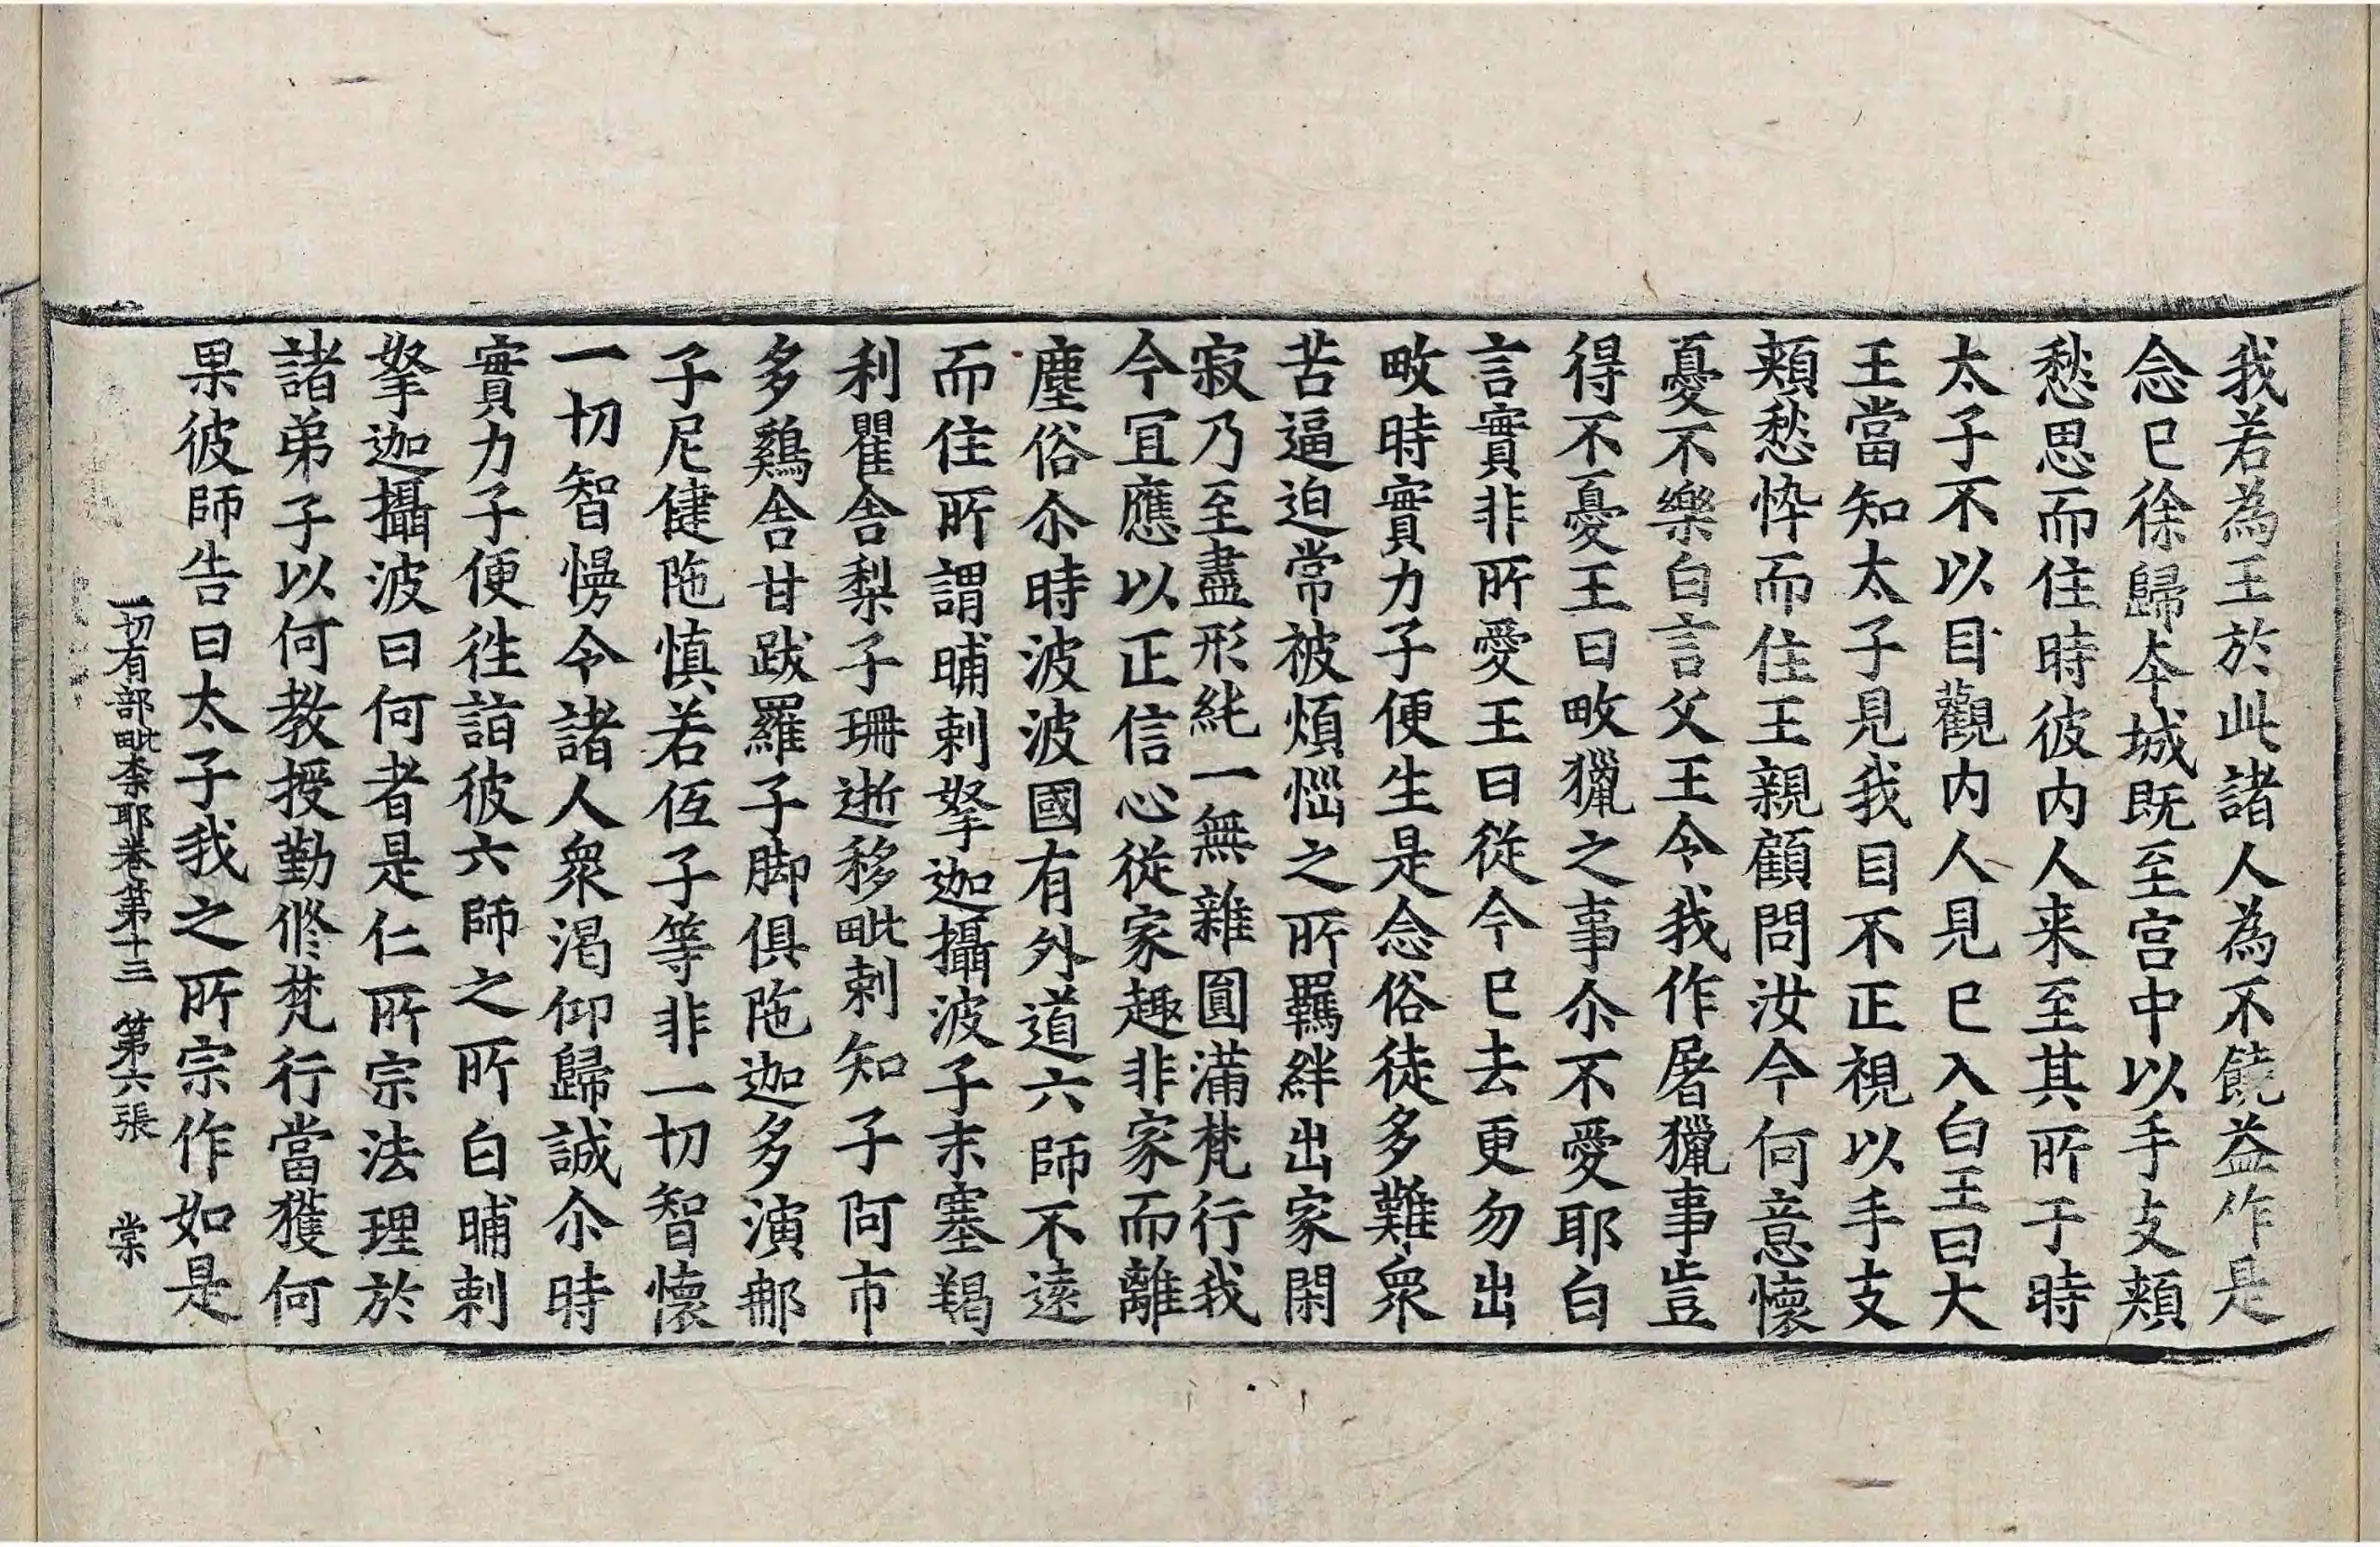 我若為王於此諸人為不饒益作是
念已徐歸夲城既至宫中以手支頰
愁思而住時彼内人来至其所于時
太子不以目觀内人見已入白王曰大
王當知太子見我目不正視以手支
頰愁悴而住王親顧問汝今何意懷
憂不樂白言父王令我作屠獵事豈
得不憂王曰畋獵之事尒不愛耶白
言實非所愛王曰從今已去更勿出
畋時實力子便生是念俗徒多難衆
苦逼迫常被煩惱之所羈絆出家閑
寂乃至盡形純一無雜圓滿梵行我
今冝應以正信心從家趣非家而離
塵俗尒時波波國有外道六師不遠
而住所謂晡剌拏迦攝波子末塞羯
利瞿舍梨子珊逝移毗剌知子阿市
多鷄舍甘跋羅子脚俱陁迦多演那
子尼健陁慎若侄子等非一切智懷
一切智慢令諸人衆渇仰歸誠尒時
實力子便往詣彼六師之所白晡剌
拏迦攝波曰何者是仁所宗法理於
諸弟子以何教授勤修梵行當獲何
果彼師告曰太子我之所宗作如是
一切有部毗柰耶卷第十三 第六張 棠